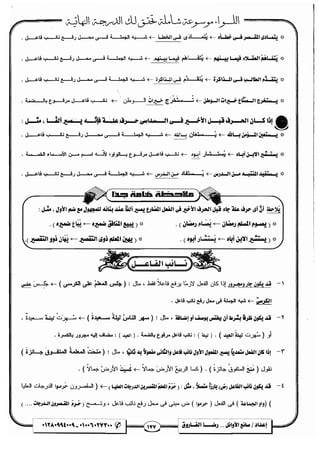 اللـواء .. موسـوعـة شـاملـة تحقـق لـك الدرجـة النهائيـة
يتمادى المقصر فى خطأه ← يُتمـادَى فـى الخطـأ ← شبه الجملة فـى محـل رفـع نائـب فاعـل .
يتفاهم العقلاء فيما بينهم ← يُتفـاهَم فيمـا بينهم ← شبه الجملة فـى محـل رفـع نائـب فاعـل .
يتقدم الطالب فى المذاكرة ← يُتقدَّم فـى المذاكرة ← شبه الجملة فـى محـل رفـع نائـب فاعـل .
يستخرج الصناع خيرات الوطن ← تُستخرَج خيرات الوطن ← نائب فاعـل مرفـوع بالضمة .
إذا كـان الحرف قبـل الأخيـر فـى السداسى حـرف علـة فإنـه يصيـر ألفـا ، مثـل :
يستعين المؤمن بالله ← يُستعان بالله ← شبه الجملة فـى محـل رفـع نائـب فاعـل .
يستشير الابن أباه ← يُستشار أبوه ← نائب فاعل مرفوع بالواو ؛ لأنه اسم من الأسماء الخمسة .
يستفيد المنتبه من الدرس ← يُستفاد من الدرس ← شبه الجملة فـى محـل رفـع نائـب فاعـل .
ملاحظة هامة جدا
يلاحظ أن أى حرف علة جاء قبل الحرف الأخير فى الفعل المضارع يصير ألفا عند بنائه للمجهول مع ضم الأول ، مثل :
( يصوم المسلم رمضان ← يُصام رمضان ) . ( يبيع المنافق ضميره ← يُباع ضميره ) .
( يستشير الابن أباه ← يُستشار أبوه ) . ( يهين المعلم ذوى التقصير ← يُهان ذوو التقصير ) .
نـائـب الفاعـل
١- قد يكون جار ومجرور إذا كان الفعل لازمًا يرفع فاعلاً فقط ، مثل : ( جلس المعلمُ على الكرسى ) ← جُلِس على
الكرسىِّ ← شبه الجملة فى محل رفع نائب فاعل .
٢- قد يكون ظرفا بشرط أن يختص بوصف أو إضافة ، مثل : ( سهر الناسُ ليلةً سعيدةً ) ← سُهِرَت ليلةٌ سعيدةٌ .
أو ( سُهِرت ليلةُ العيدِ ) . ( ليلةُ ) : نائب فاعل مرفوع بالضمة . ( العيد ) : مضاف إليه مجرور بالكسرة .
٣- إذا كان الفعل متعديًا يصير المفعول الأول نائب فاعل والثانى مفعولا به ثانيًا ، مثل : ( منحتُ المعلمةَ المتفوقَ جائزةً )
نقول ( مُنِح المتفوقُ جائزةً ) . ( كسا الربيعُ الأرضَ جمالاً ← كُسيتِ الأرضُ جمالاً ) .
٤- قد يكون نائب الفاعل ضميرًا بارزًا متصلاً ، مثل : ( حرم المعلم المقصرين الدرجات العليا ) ← المقصرون حُرِموا الدرجات العليا
( واو الجماعة ) فى الفعل ( حرموا ) ض مبنى فى محل رفع نائب فاعل ، وتصبح ( حُرِم المقصرون الدرجات .... )
إعداد / صانع الأوائل .. رضـا الفـاروق ١٢٧ ٠١٠٠٦٠٢٧٣٠٠ - ٠١٢٨٠٩٩٤٠٠٩